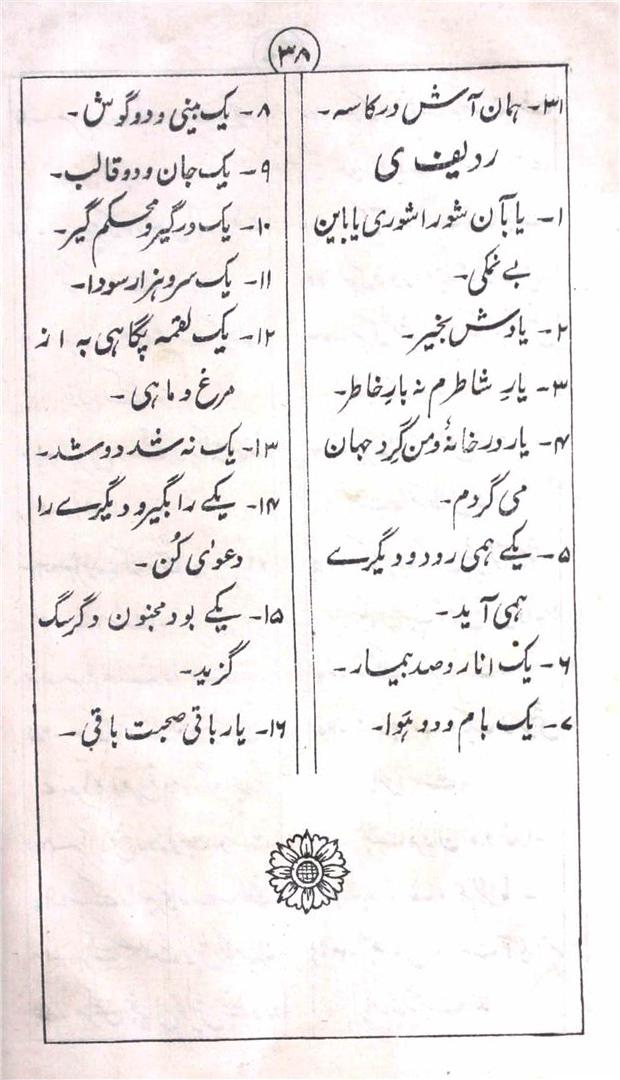 ۳۸
۳۱۔ ہمان آش در کاسہ۔
ردیف ی
۱۔ یا بآن شورا شوری یا باین
بے نمکی۔
۲۔ یادش بخیر۔
۳۔ یارِ شاطرم نہ بارِ خاطر۔
۴۔ یار در خانۂ و من گردِ جہان
می گردم۔
۵۔ یکے ہمی رود و دیگرے
ہمی آید۔
۶۔ یک انار و صد بیمار۔
۷۔ یک بام و دو ہَوا۔
۸۔ یک بینی و دو گوش۔
۹۔ یک جان و دو قالب۔
۱۰۔ یک در گیر و محکم گیر۔
۱۱۔ یک سر و ہزار سودا۔
۱۲۔ یک لقمہ پگاہی بہ از
مرغ و ماہی۔
۱۳۔ یک نہ شد دو شد۔
۱۴۔ یکے را بگیر و دیگرے را
دعویٰ کُن۔
۱۵۔ یکے بود مجنون دگر سگ
گزید۔
۱۶۔ یار باقی صحبت باقی۔